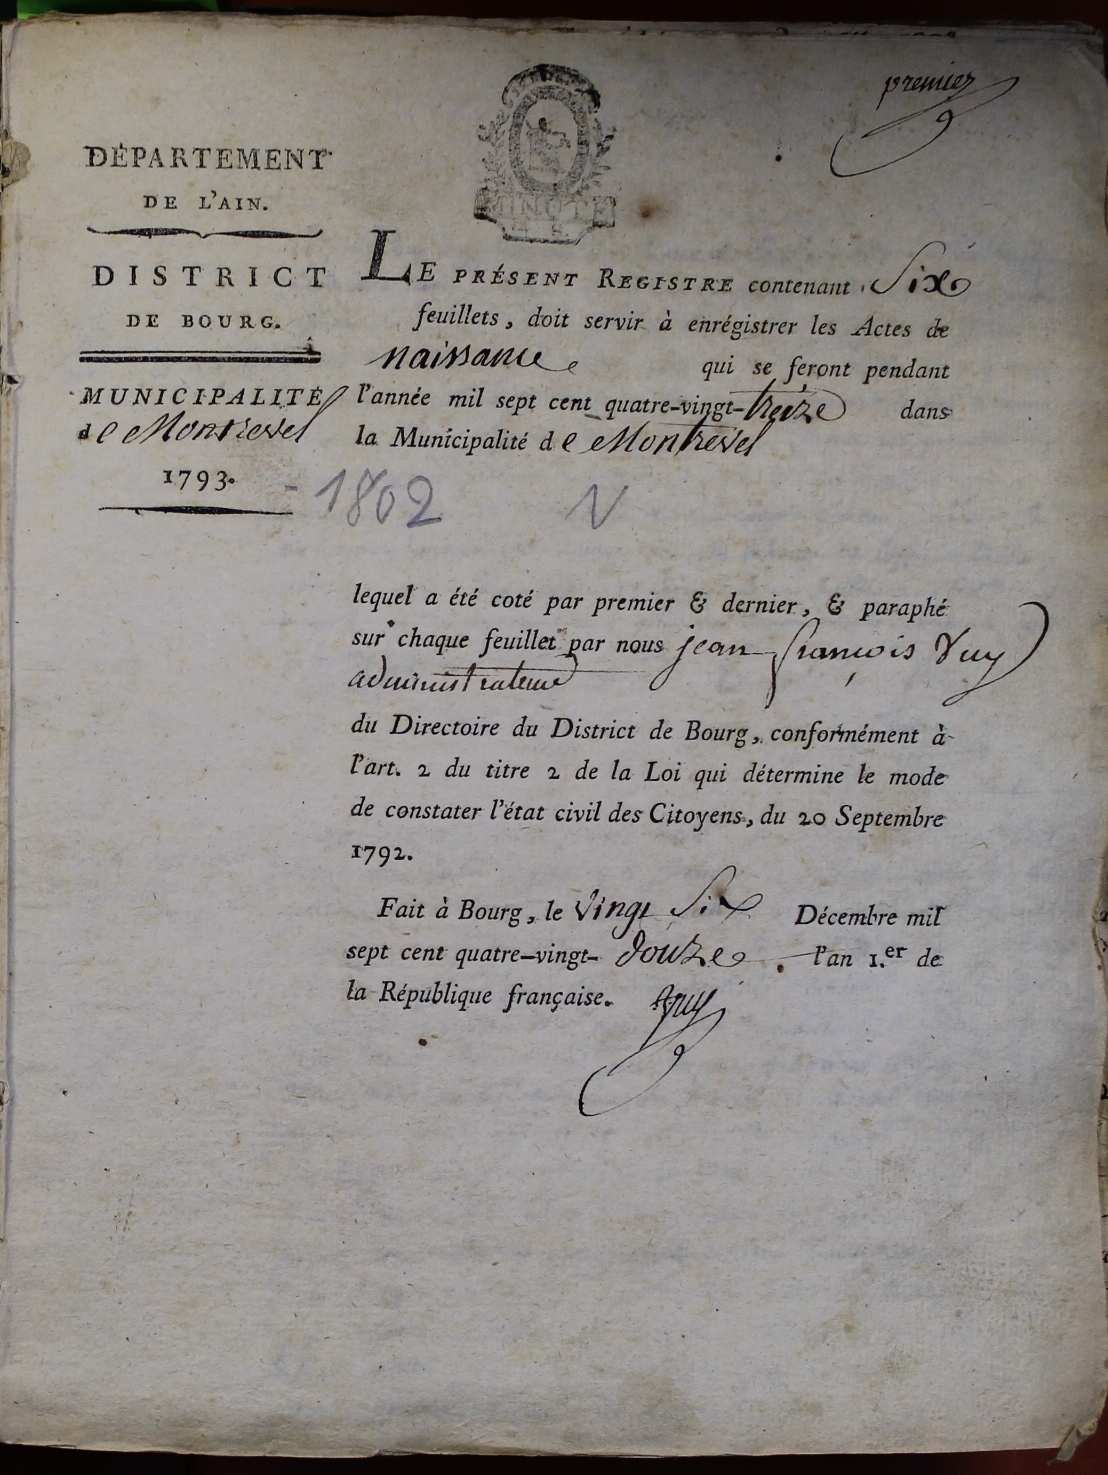 premier
MINUTE
DÉPARTEMENT
DE L'AIN.
DISTRICT
DE BOURG.
MUNICIPALITÉ
de Montrevel
1793.
LE PRÉSENT REGISTRE contenant Six
feuillets, doit servir à enrégistrer les Actes de
naissance qui se feront pendant
l'année mil sept cent quatre-vingt-treize dans
la Municipalité de Montrevel
- 1802 N
lequel a été coté par premier & dernier, & paraphé
sur chaque feuillet par nous jean françois Vuy
administrateur
du Directoire du District de Bourg, conformément à
l'art. 2 du titre 2 de la Loi qui détermine le mode
de constater l'état civil des Citoyens, du 20 Septembre
1792.
Fait à Bourg, le Vingt Six Décembre mil
sept cent quatre-vingt-douze l'an 1.er de
la République française.